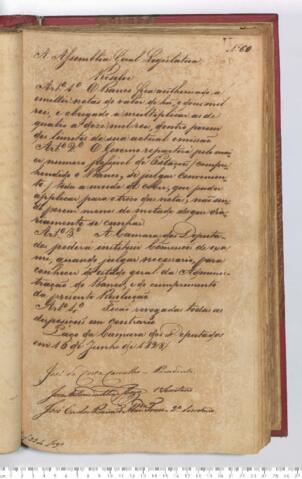 N. 60
A Assemblea Geral Legislativa
Resolve
Art.º 1º O Banco fica authorisado a
emittir notas do valor de hum, e dous mil
reis, e obrigado a multiplicar as de
quatro a doze mil reis, dentro porem
dos limites da sua actual emissão
Art.º 2º O Governo repartirá pelo maior
numero possivel de Estações, comprehendido
o Banco, se julgar conveniente
toda a moeda de cobre, que puder
applicar para o troco das notas, não sendo
porem menos de metade do que diariamente
se cunhar
Art.º 3º A Camara dos Deputados
poderá instituir Comissão de exame,
quando julgar necessario, para
conhecer o estado geral da Administração
do Banco, e do cumprimento
da presente Resolução
Art.º 4º Ficão revogadas todas as
disposições em contrario
Paço da Camara dos Deputados
em 16 de Junho de 1828
José da Costa Carvalho - Presidente
1º Secretario
José Carlos Pereira de Almeida Torres 2º Secretario